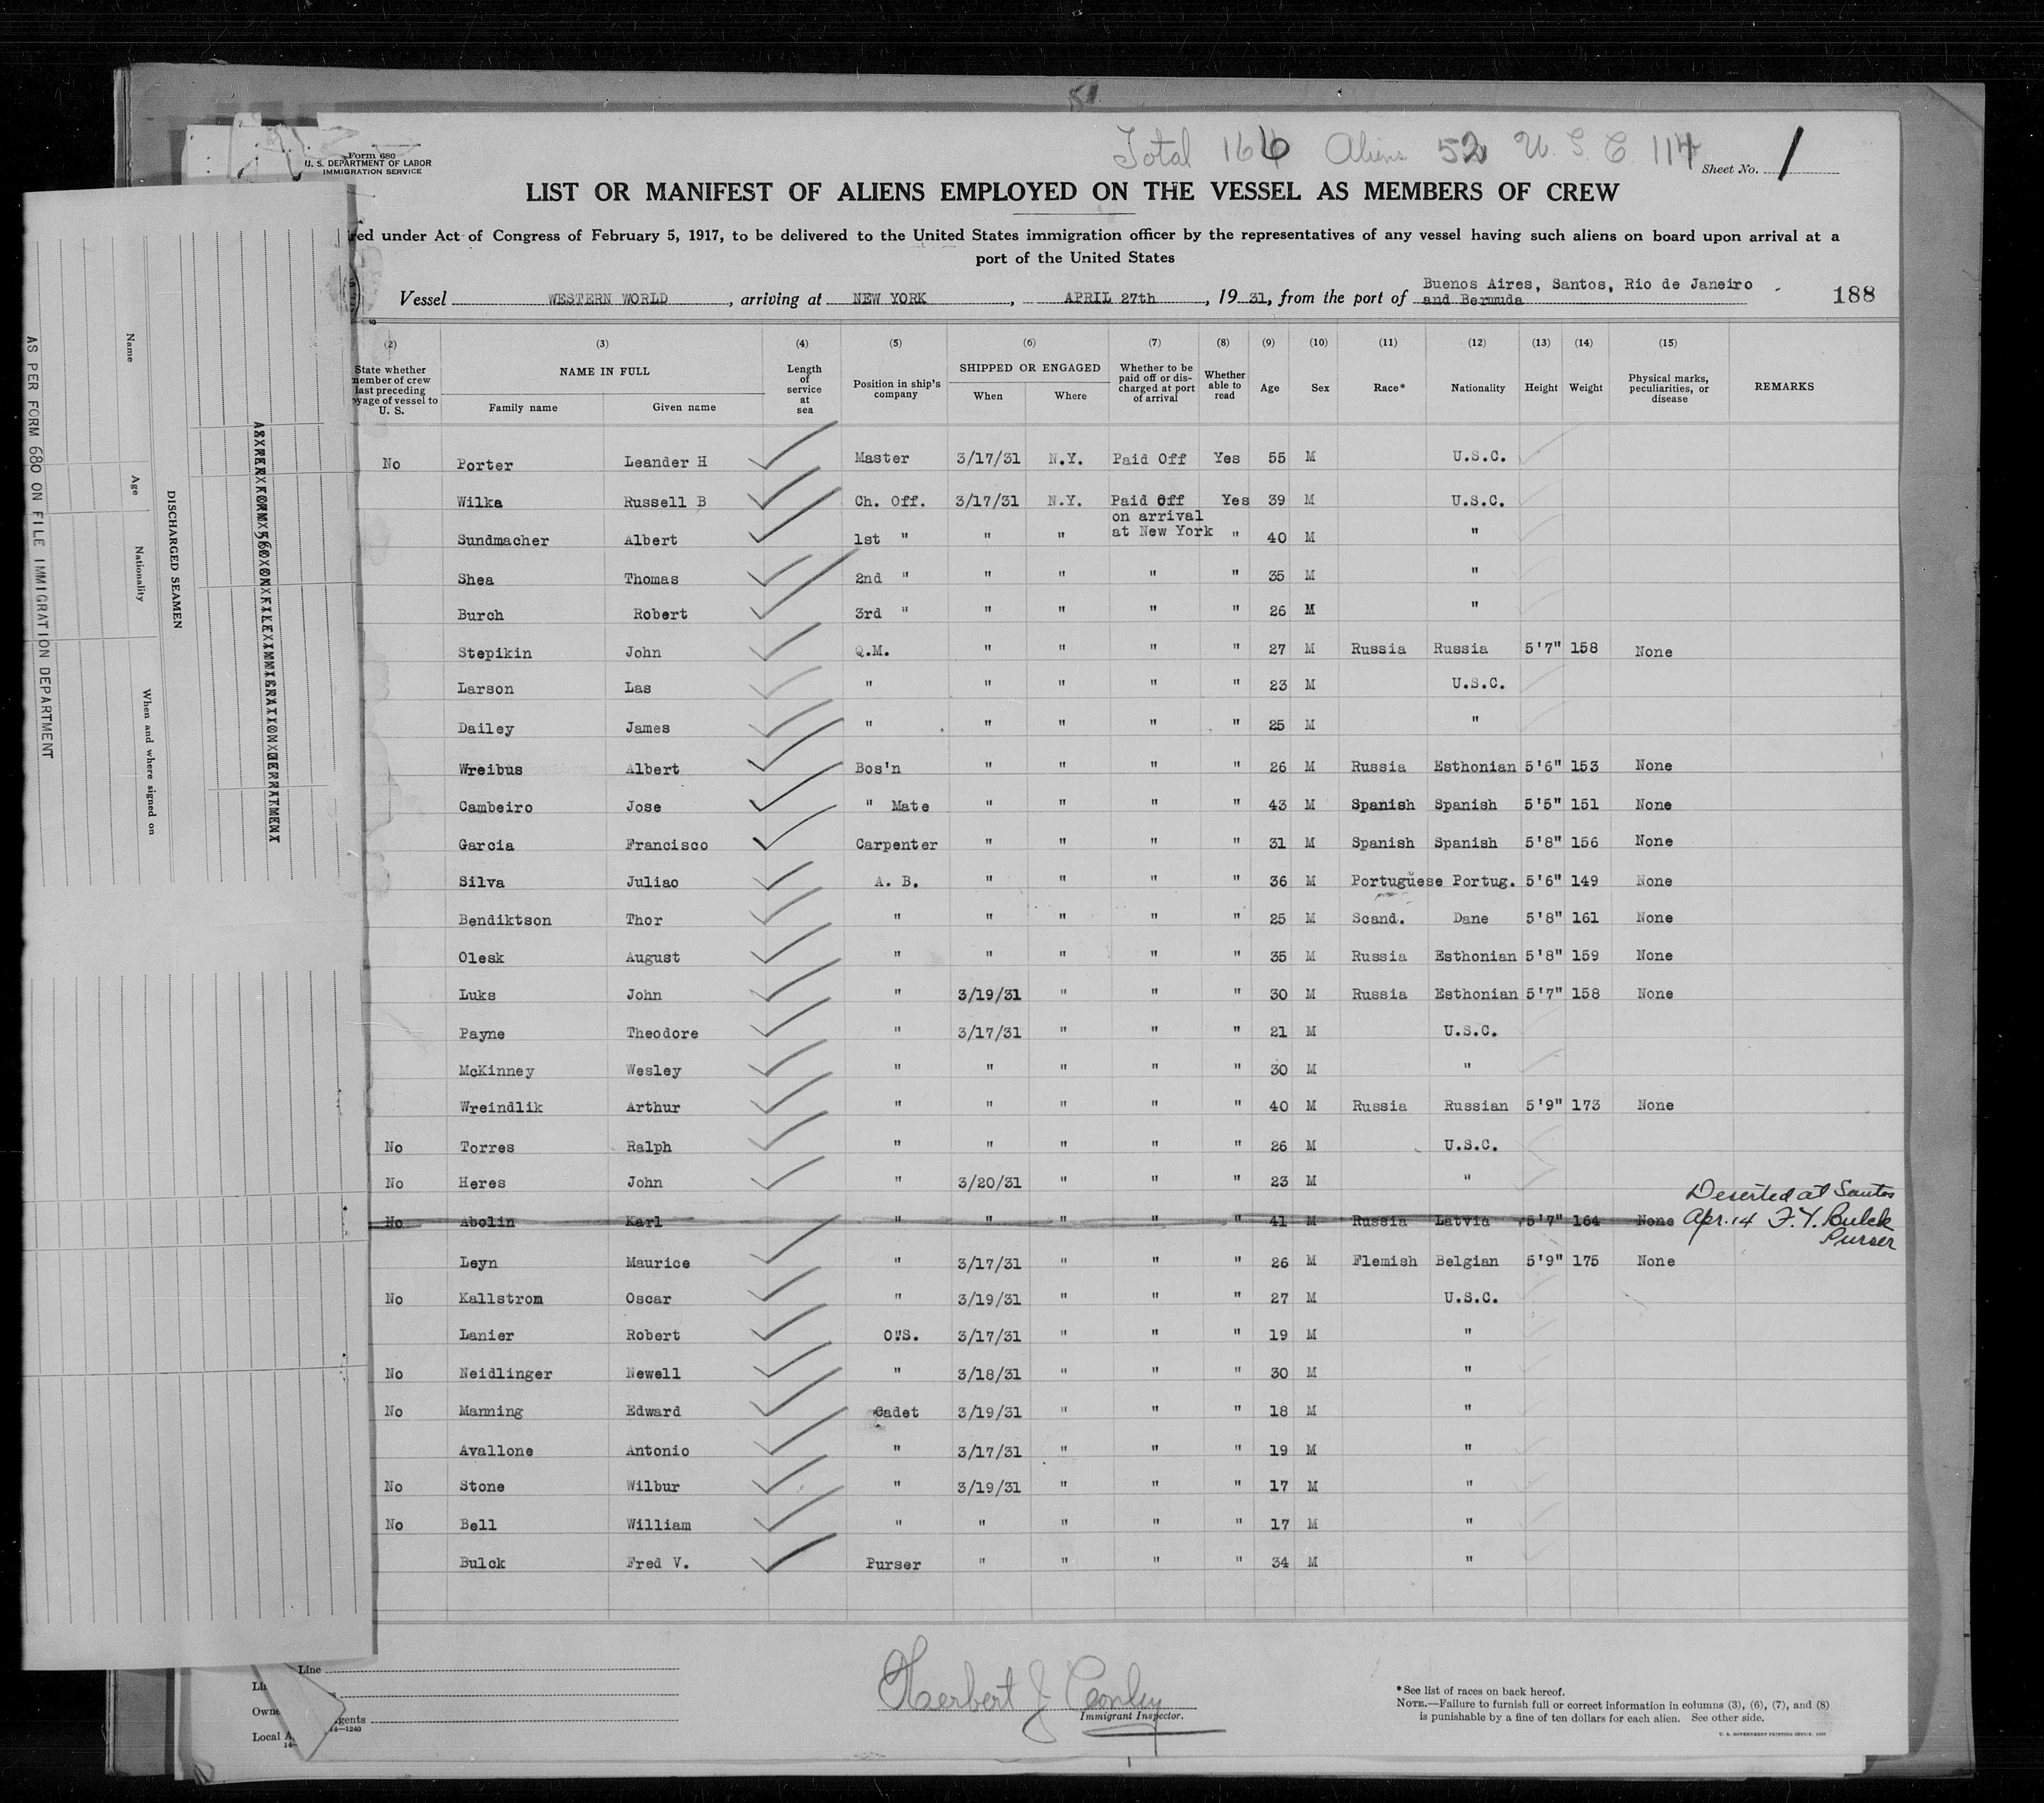 Total 166 Aliens 52 U.S.C. 114
Form 680
U. S. DEPARTMENT OF LABOR
IMMIGRATION SERVICE
Sheet No. 1
LIST OR MANIFEST OF ALIENS EMPLOYED ON THE VESSEL AS MEMBERS OF CREW
red under Act of Congress of February 5, 1917, to be delivered to the United States immigration officer by the representatives of any vessel having such aliens on board upon arrival at a
port of the United States
Buenos Aires, Santos, Rio de Janeiro
Vessel WESTERN WORLD, arriving at NEW YORK, APRIL 27th, 19 31, from the port of and Bermuda 188
(2) (3) (4) (5) (6) (7) (8) (9) (10) (11) (12) (13) (14) (15)
State whether member of crew last preceding voyage of vessel to U. S. NAME IN FULL Family name Given name Length of service at sea Position in ship's company SHIPPED OR ENGAGED When Where Whether to be paid off or discharged at port of arrival Whether able to read Age Sex Race* Nationality Height Weight Physical marks, peculiarities, or disease REMARKS
No Porter Leander H Master 3/17/31 N.Y. Paid Off Yes 55 M U.S.C.
Wilka Russell B Ch. Off. 3/17/31 N.Y. Paid Off Yes 39 M U.S.C.
on arrival
Sundmacher Albert 1st " " " at New York " 40 M "
Shea Thomas 2nd " " " " " 35 M "
Burch Robert 3rd " " " " " 26 M "
Stepikin John Q.M. " " " " 27 M Russia Russia 5'7" 158 None
Larson Las " " " " " 23 M U.S.C.
Dailey James " " " " " 25 M "
Wreibus Albert Bos'n " " " " 26 M Russia Esthonian 5'6" 153 None
Cambeiro Jose " Mate " " " " 43 M Spanish Spanish 5'5" 151 None
Garcia Francisco Carpenter " " " " 31 M Spanish Spanish 5'8" 156 None
Silva Juliao A. B. " " " " 36 M Portuguese Portug. 5'6" 149 None
Bendiktson Thor " " " " " 25 M Scand. Dane 5'8" 161 None
Olesk August " " " " " 35 M Russia Esthonian 5'8" 159 None
Luks John " 3/19/31 " " " 30 M Russia Esthonian 5'7" 158 None
Payne Theodore " 3/17/31 " " " 21 M U.S.C.
McKinney Wesley " " " " " 30 M "
Wreindlik Arthur " " " " " 40 M Russia Russian 5'9" 173 None
No Torres Ralph " " " " " 26 M U.S.C.
No Heres John " 3/20/31 " " " 23 M "
Deserted at Santos
No Abolin Karl " " " " " 41 M Russia Latvia 5'7" 164 None Apr. 14 F.V. Bulck
Purser
Leyn Maurice " 3/17/31 " " " 26 M Flemish Belgian 5'9" 175 None
No Kallstrom Oscar " 3/19/31 " " " 27 M U.S.C.
Lanier Robert O"S. 3/17/31 " " " 19 M "
No Neidlinger Newell " 3/18/31 " " " 30 M "
No Manning Edward Cadet 3/19/31 " " " 18 M "
Avallone Antonio " 3/17/31 " " " 19 M "
No Stone Wilbur " 3/19/31 " " " 17 M "
No Bell William " " " " " 17 M "
Bulck Fred V. Purser " " " " 34 M "
Line
Herbert J Conley
Immigrant Inspector.
Local A
*See list of races on back hereof.
NOTE.—Failure to furnish full or correct information in columns (3), (6), (7), and (8)
is punishable by a fine of ten dollars for each alien. See other side.
U. S. GOVERNMENT PRINTING OFFICE
gents
14—1240
AS PER FORM 680 ON FILE IMMIGRATION DEPARTMENT
Name Age Nationality When and where signed on
DISCHARGED SEAMEN